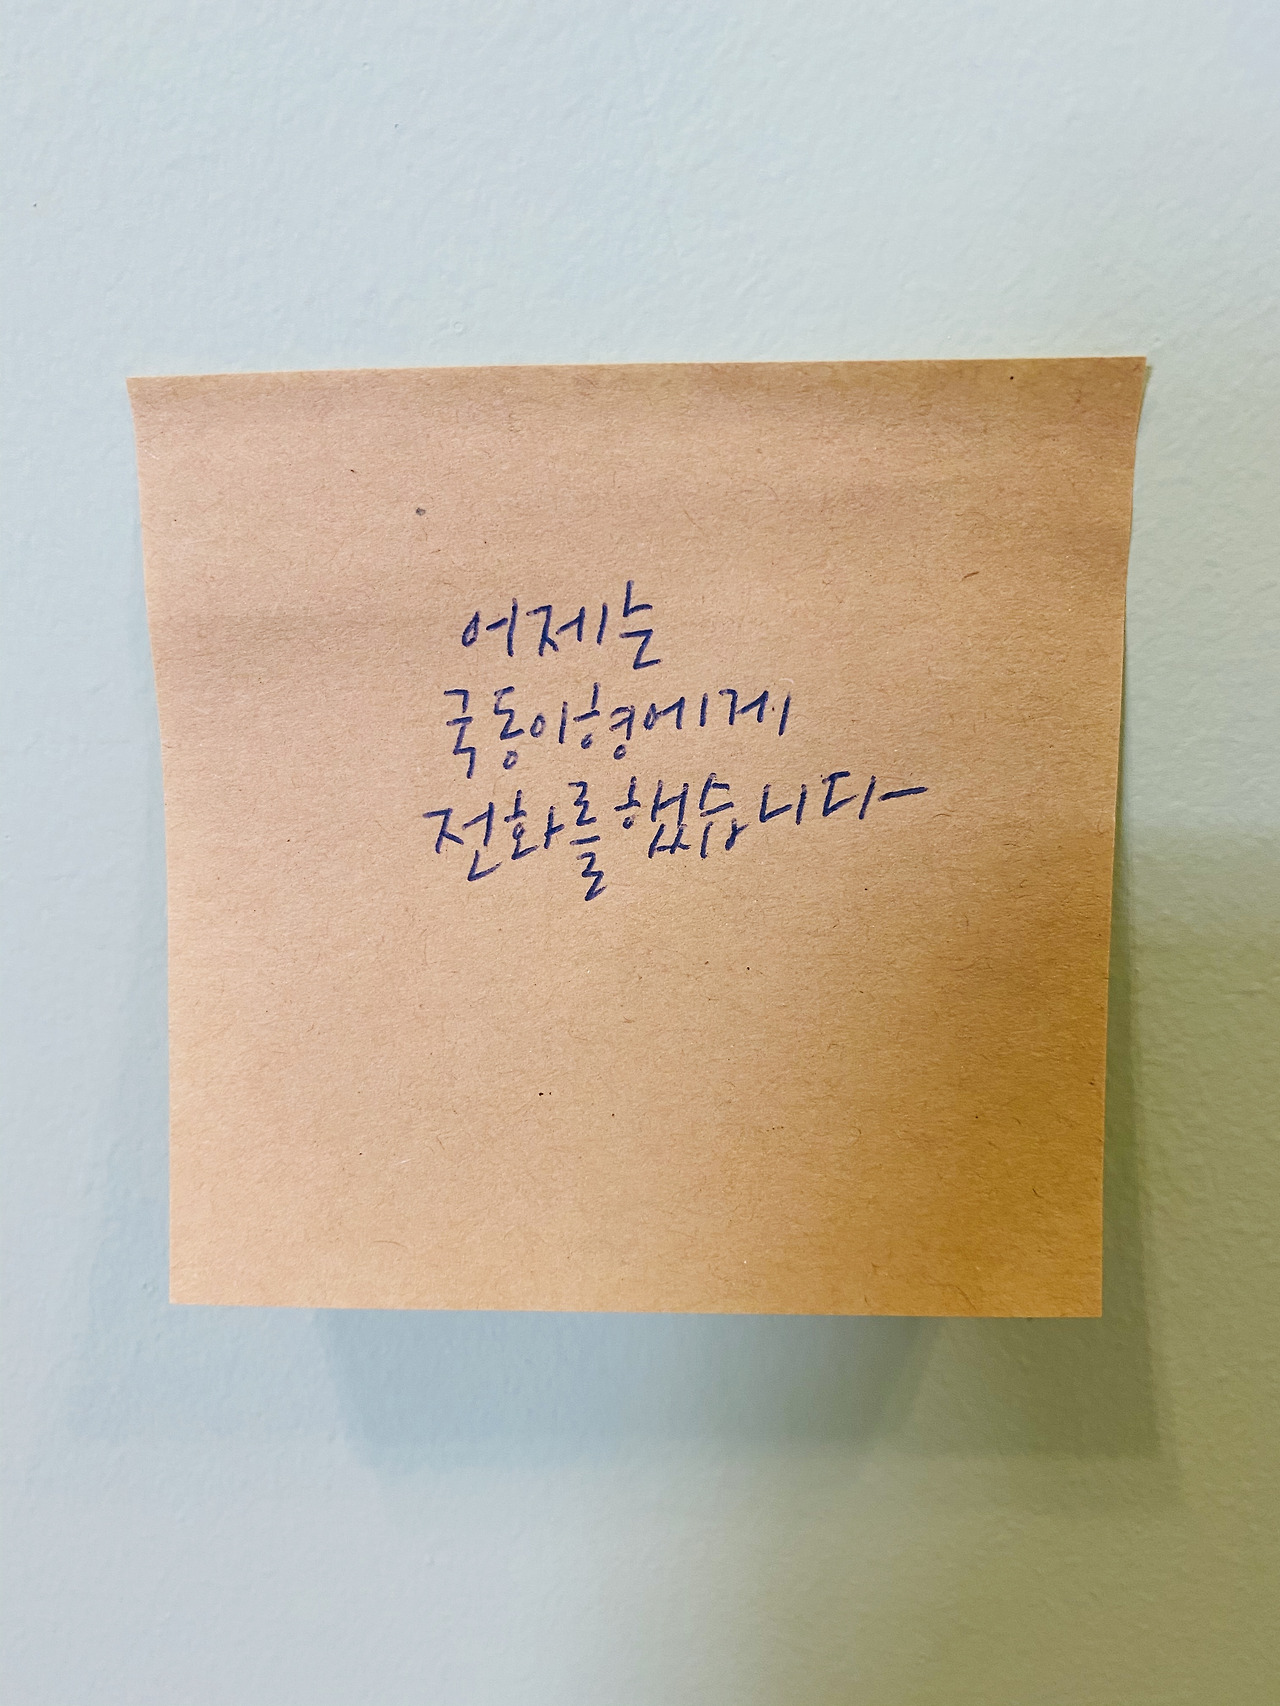 어제는
국동이형에게
전화를했습니다-